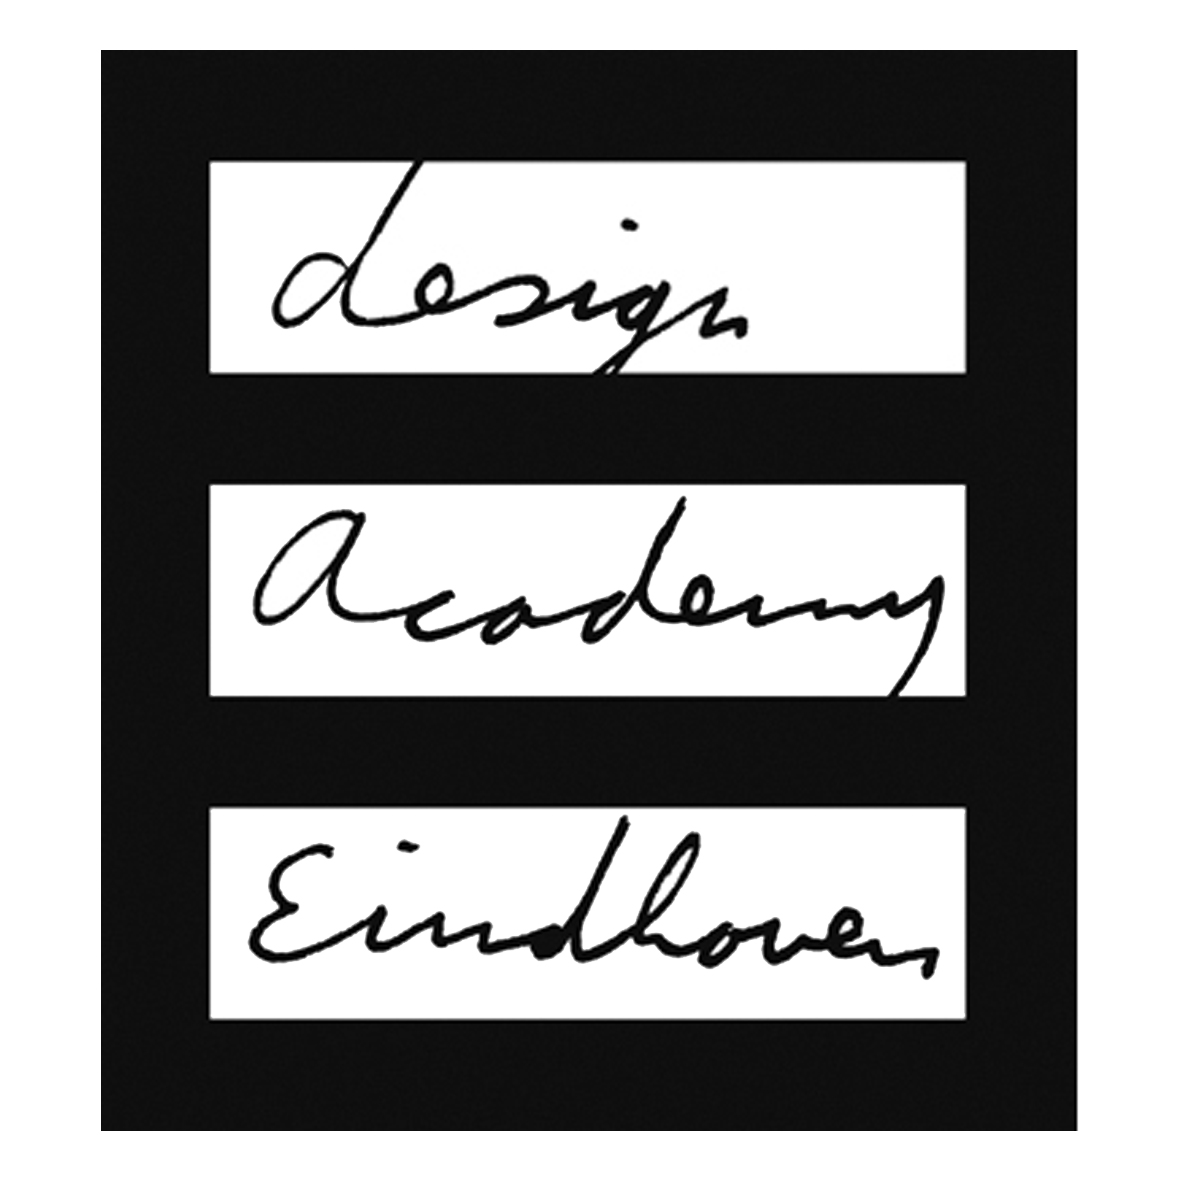 design
Academy
Eindhoven